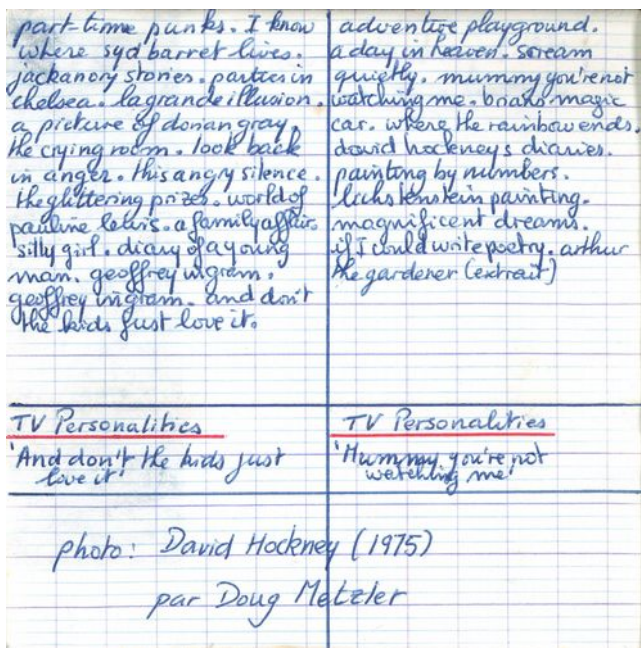 part-time punks. I know
where syd barret lives.
jackanory stories. parties in
chelsea. la grande illusion.
a picture of dorian gray
the crying room. look back
in anger. this angry silence.
the glittering prizes. world of
pauline lewis. a family affair.
silly girl. diary of a young
man. geoffrey ingram.
geoffrey ingram. and don't
the kids just love it.
adventure playground.
a day in heaven. scream
quietly. mummy you're not
watching me. brians magic
car. where the rainbow ends
david hockneys diaries.
painting by numbers.
lichstenstein painting.
magnificent dreams.
if I could write poetry. arthur
the gardener (extrait)
TV Personalities
'And don't the kids just
love it'
TV Personalities
'Mummy you're not
watching me'
photo: David Hockney (1975)
par Doug Metzler